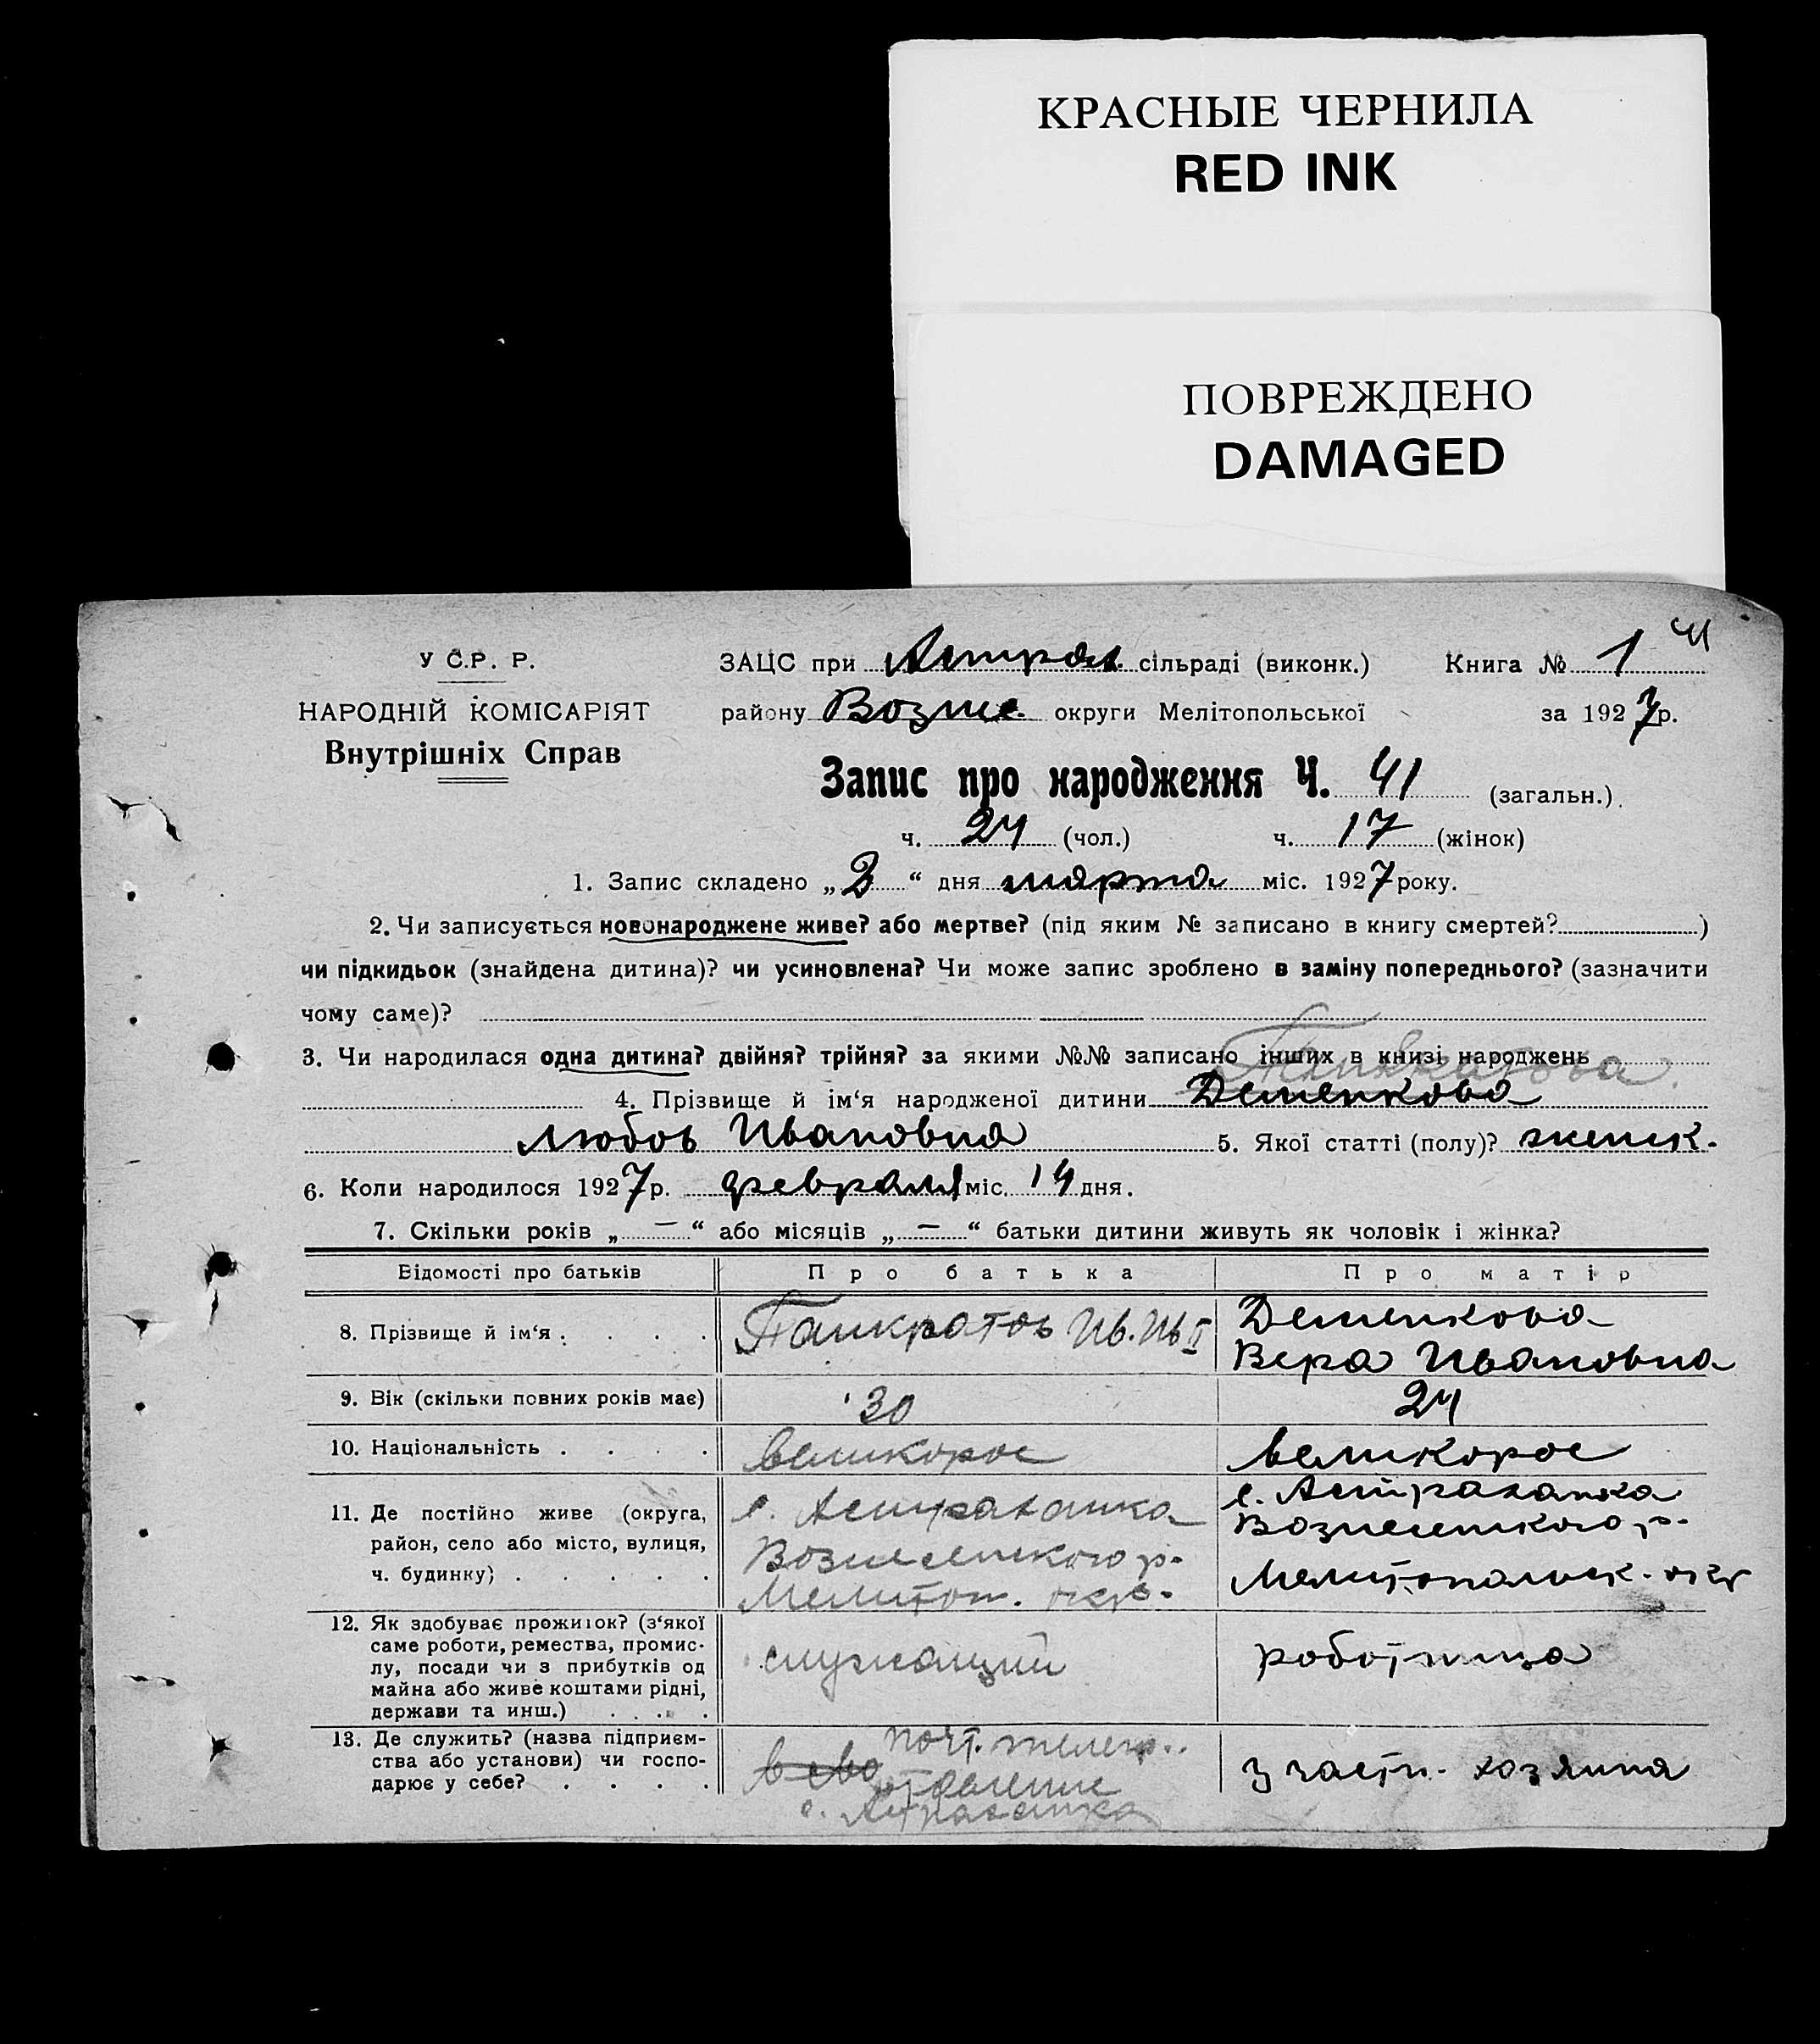 КРАСНЫЕ ЧЕРНИЛА
RED INK
ПОВРЕЖДЕНО
DAMAGED
У С.Р. Р.
НАРОДНІЙ КОМІСАРІЯТ
Внутрішніх Справ
41
ЗАЦС при Астрах. сільраді (виконк.) Книга № 1
району Возне. округи Мелітопольської за 1927р.
Запис про народження Ч. 41 (загальн.).
ч. 24 (чол.) ч. 17 (жінок)
1. Запис складено „2“ дня марта міс. 1927 року.
2. Чи записується новонароджене живе? або мертве? (під яким № записано в книгу смертей? )
чи підкидьок (знайдена дитина)? чи усиновлена? Чи може запис зроблено в заміну попереднього? (зазначити
чому саме)?
3. Чи народилася одна дитина? двійня? трійня? за якими №№ записано інших в книзі народжень
Панкратова.
4. Прізвище й ім‘я народженої дитини Деменкова
Любовь Ивановна 5. Якої статті (полу)? женск.
6. Коли народилося 1927р. февраля міс. 14 дня.
7. Скільки років „—“ або місяців „—“ батьки дитини живуть як чоловік і жінка?
Відомості про батьків Про батька Про матір
8. Прізвище й ім‘я . . . . Панкратов Ив. Ив I Деменкова
Вера Ивановна
9. Вік (скільки повних років має) 30 24
10. Національність . . . . великорос великорос
11. Де постійно живе (округа, с. Астраханка с. Астраханка
район, село або місто, вулиця, Вознесенского р. Вознесенского р.
ч. будинку) . . . . . Мелитоп. окр. Мелитопольск. окр
12. Як здобуває прожиток? (з‘якої
саме роботи, ремества, промис-
лу, посади чи з прибутків од служащий работница
майна або живе коштами рідні,
держави та инш.) . . . .
13. Де служить? (назва підприєм- почт. телегр.
ства або установи) чи госпо- отделение у частн. хозяина
дарює у себе? . . . . с. Астраханка